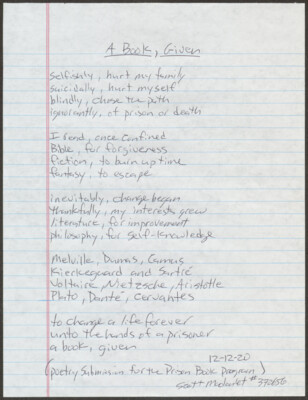 A Book, Given
selfishly, hurt my family
suicidally, hurt myself
blindly, chose the path
ignorantly, of prison or death
I read, once confined
Bible, for forgiveness
fiction, to burn up time
fantasy, to escape
inevitably, change began
thankfully, my interests grew
literature, for improvement
philosophy, for self-knowledge
Melville, Dumas, Camus
Kierkegaard and Sartré
Voltaire, Nietzsche, Aristotle
Plato, Danté, Cervantes
to change a life forever
unto the hands of a prisoner
a book, given
12-12-20
(poetry submission for the Prison Book Program)
Scott